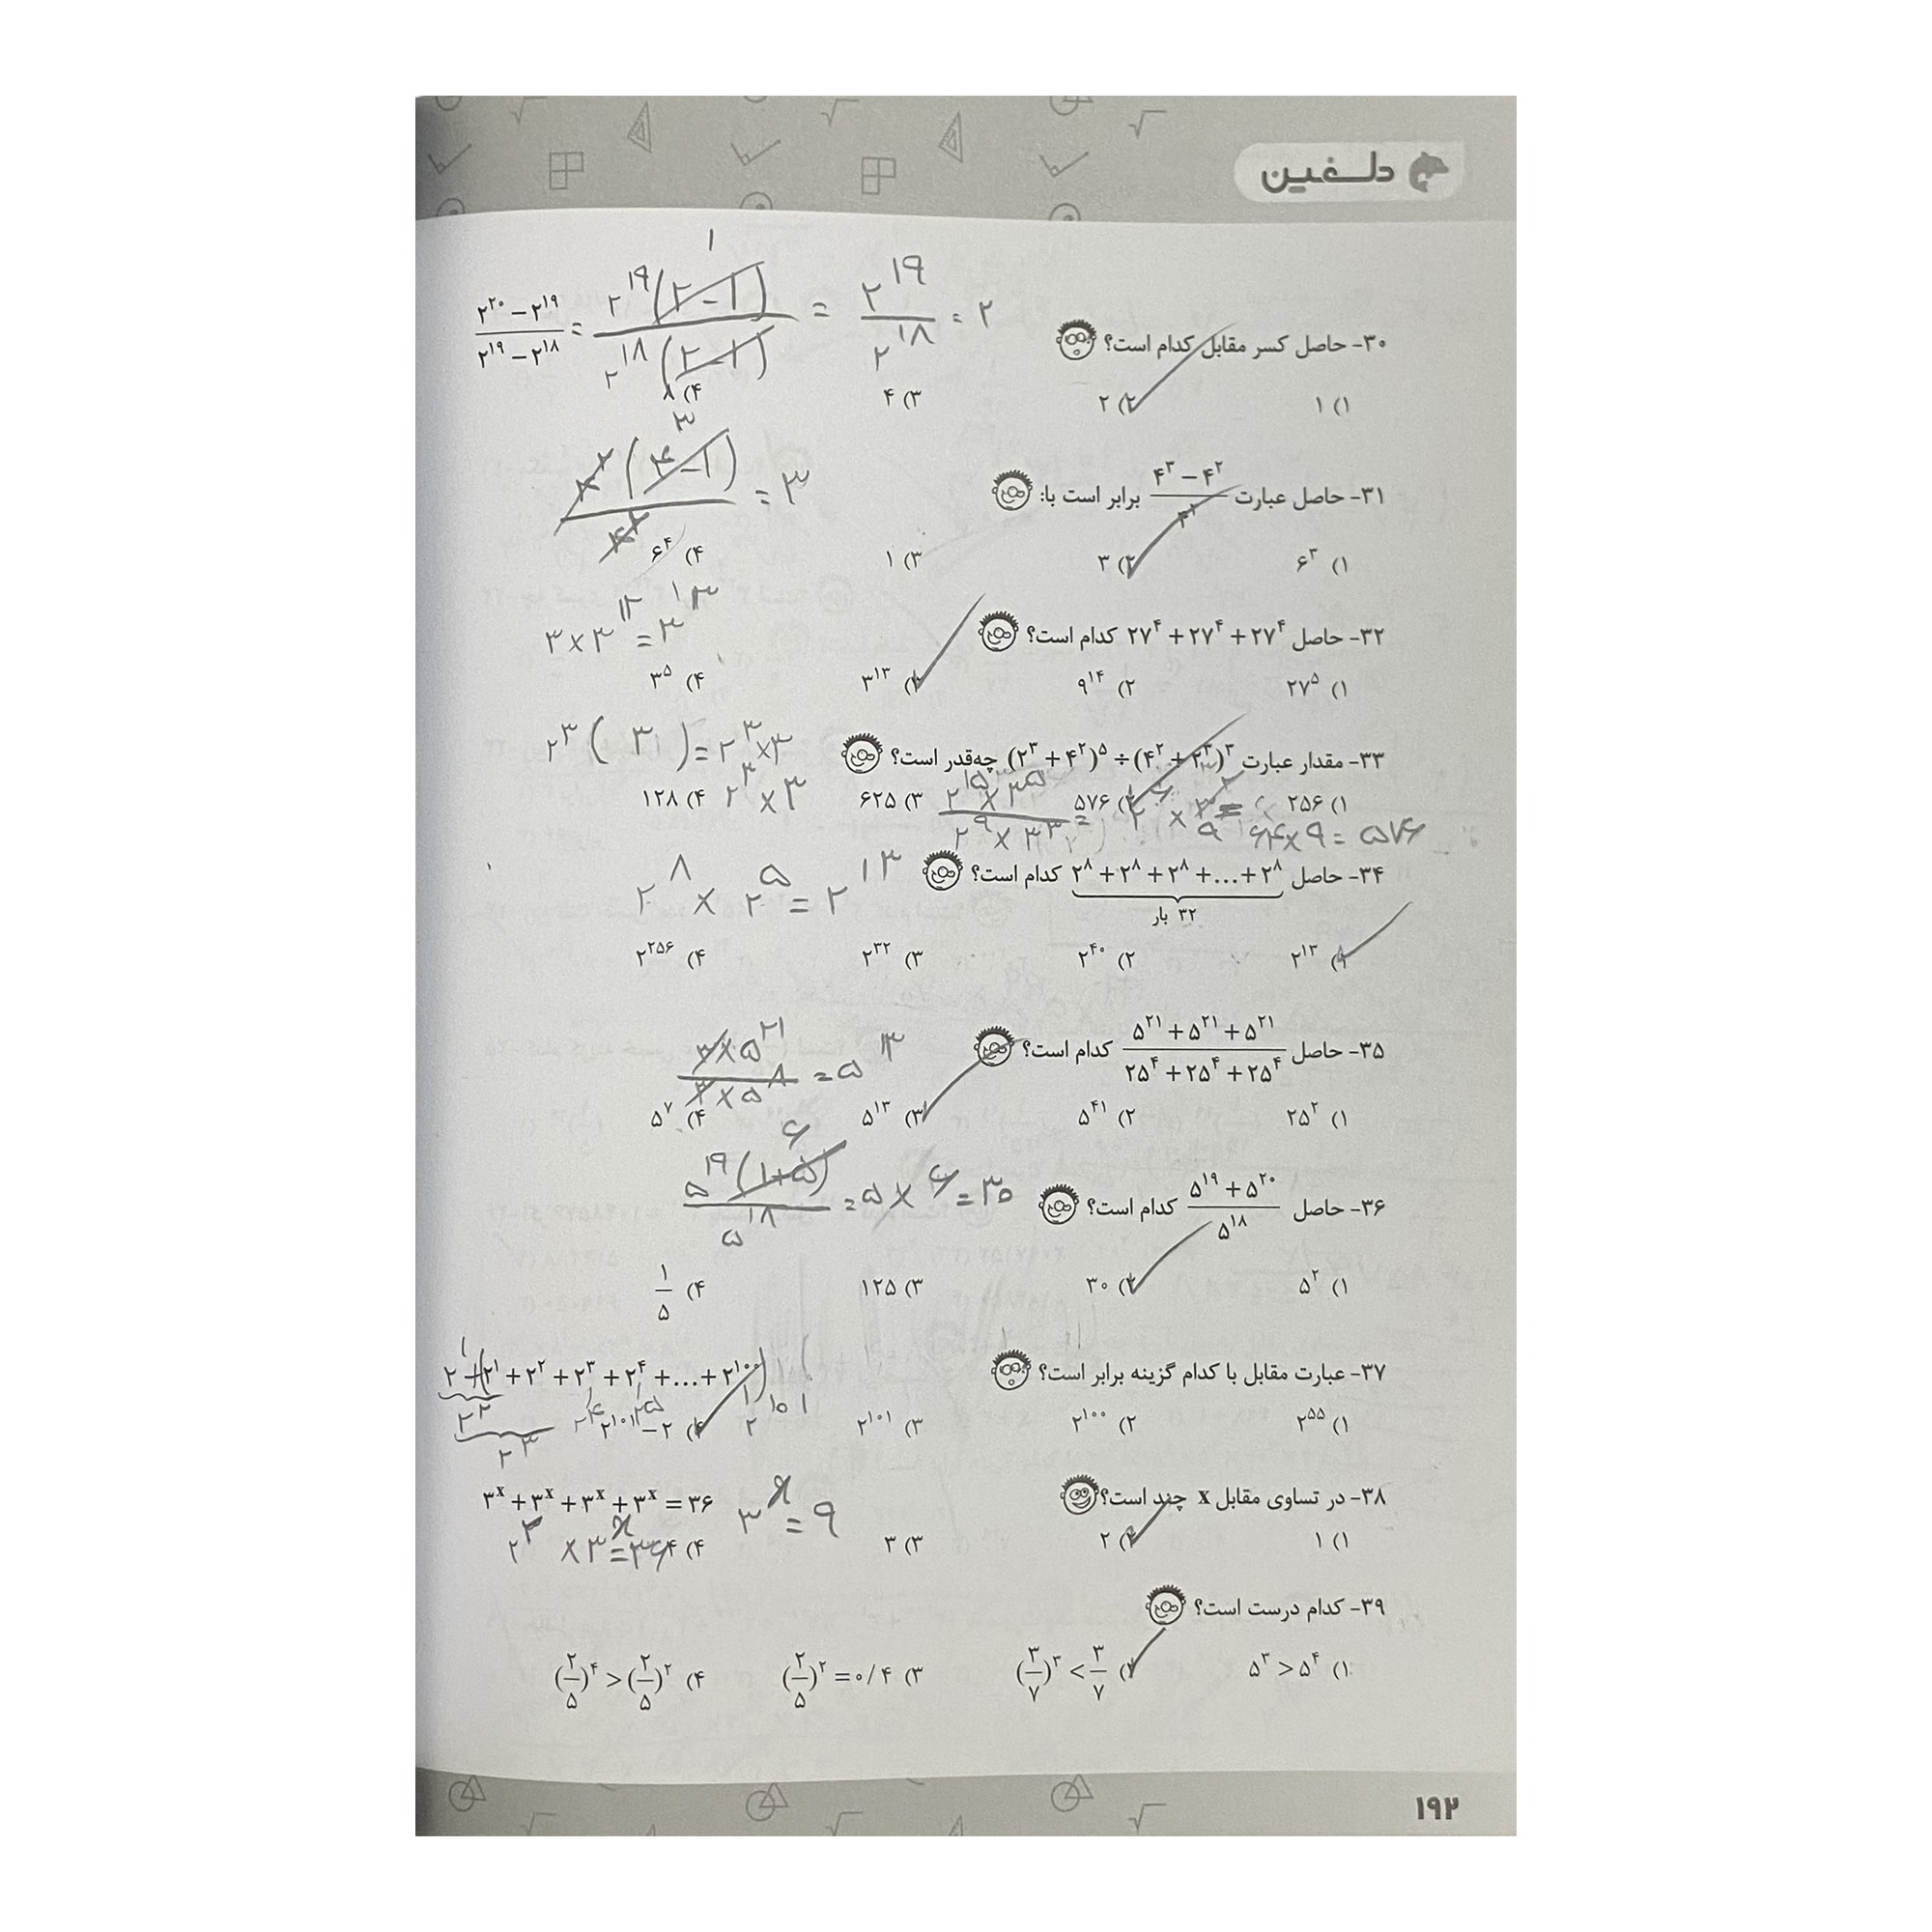 دلفین
۳۰- حاصل کسر مقابل کدام است؟
(۲^۲۰ − ۲^۱۹)/(۲^۱۹ − ۲^۱۸) = ۲^۱۹(۲−۱)/۲^۱۸(۲−۱) = ۲^۱۹/۲^۱۸ = ۲
۱
۱) ۱ ۲) ۲ ۳) ۴ ۴) ۸
۳۱- حاصل عبارت (۴^۳ − ۴^۲)/۴^۲ برابر است با:
۴^۲(۴−۱)/۴^۲ = ۳
۳
۱) ۶^۳ ۲) ۳ ۳) ۱ ۴) ۶^۴
۳۲- حاصل ۲۷^۴ + ۲۷^۴ + ۲۷^۴ کدام است؟
۳ × ۳^۱۲ = ۳^۱۳
۱) ۲۷^۵ ۲) ۹^۱۴ ۳) ۳^۱۳ ۴) ۳^۵
۳۳- مقدار عبارت (۲^۳ + ۴^۲)^۵ ÷ (۴^۲ + ۲^۳)^۳ چه‌قدر است؟
۲^۳( ۳ ) = ۲^۳ × ۳
۱) ۲۵۶ ۲) ۵۷۶ ۳) ۶۲۵ ۴) ۱۲۸
۲^۳ × ۳
۲^۱۵ × ۳^۵/۲^۹ × ۳^۳ = ۲^۶ × ۳^۲ =
۹ ۶۴ × ۹ = ۵۷۶
۳۴- حاصل ۲^۸ + ۲^۸ + ۲^۸ + ... + ۲^۸ کدام است؟
۳۲ بار
۲^۸ × ۲^۵ = ۲^۱۳
۱) ۲^۱۳ ۲) ۲^۴۰ ۳) ۲^۳۲ ۴) ۲^۲۵۶
۳۵- حاصل (۵^۲۱ + ۵^۲۱ + ۵^۲۱)/(۲۵^۴ + ۲۵^۴ + ۲۵^۴) کدام است؟
۳ × ۵^۲۱/۳ × ۵^۸ = ۵^۱۳
۱) ۲۵^۲ ۲) ۵^۴۱ ۳) ۵^۱۳ ۴) ۵^۷
۳۶- حاصل (۵^۱۹ + ۵^۲۰)/۵^۱۸ کدام است؟
۶
۵^۱۹(۱+۵)/۵^۱۸ = ۵ × ۶ = ۳۰
۱) ۵^۲ ۲) ۳۰ ۳) ۱۲۵ ۴) ۱/۵
۳۷- عبارت مقابل با کدام گزینه برابر است؟
۲ + (۲^۱ + ۲^۲ + ۲^۳ + ۲^۴ + ... + ۲^۱۰۰)
۱) ۲^۵۵ ۲) ۲^۱۰۰ ۳) ۲^۱۰۱ ۴) ۲^۱۰۱ − ۲
۲^۲
۲^۳
۲^۱۰۱
۳۸- در تساوی مقابل x چند است؟
۳^x + ۳^x + ۳^x + ۳^x = ۳۶
۳^x = ۹
۱) ۱ ۲) ۲ ۳) ۳ ۴) ۴
۲^۲ × ۳^x = ۳۶
۳۹- کدام درست است؟
۱) ۵^۳ > ۵^۴ ۲) (۳/۷)^۳ < ۳/۷ ۳) (۲/۵)^۲ = ۰/۴ ۴) (۲/۵)^۴ > (۲/۵)^۲
۱۹۲